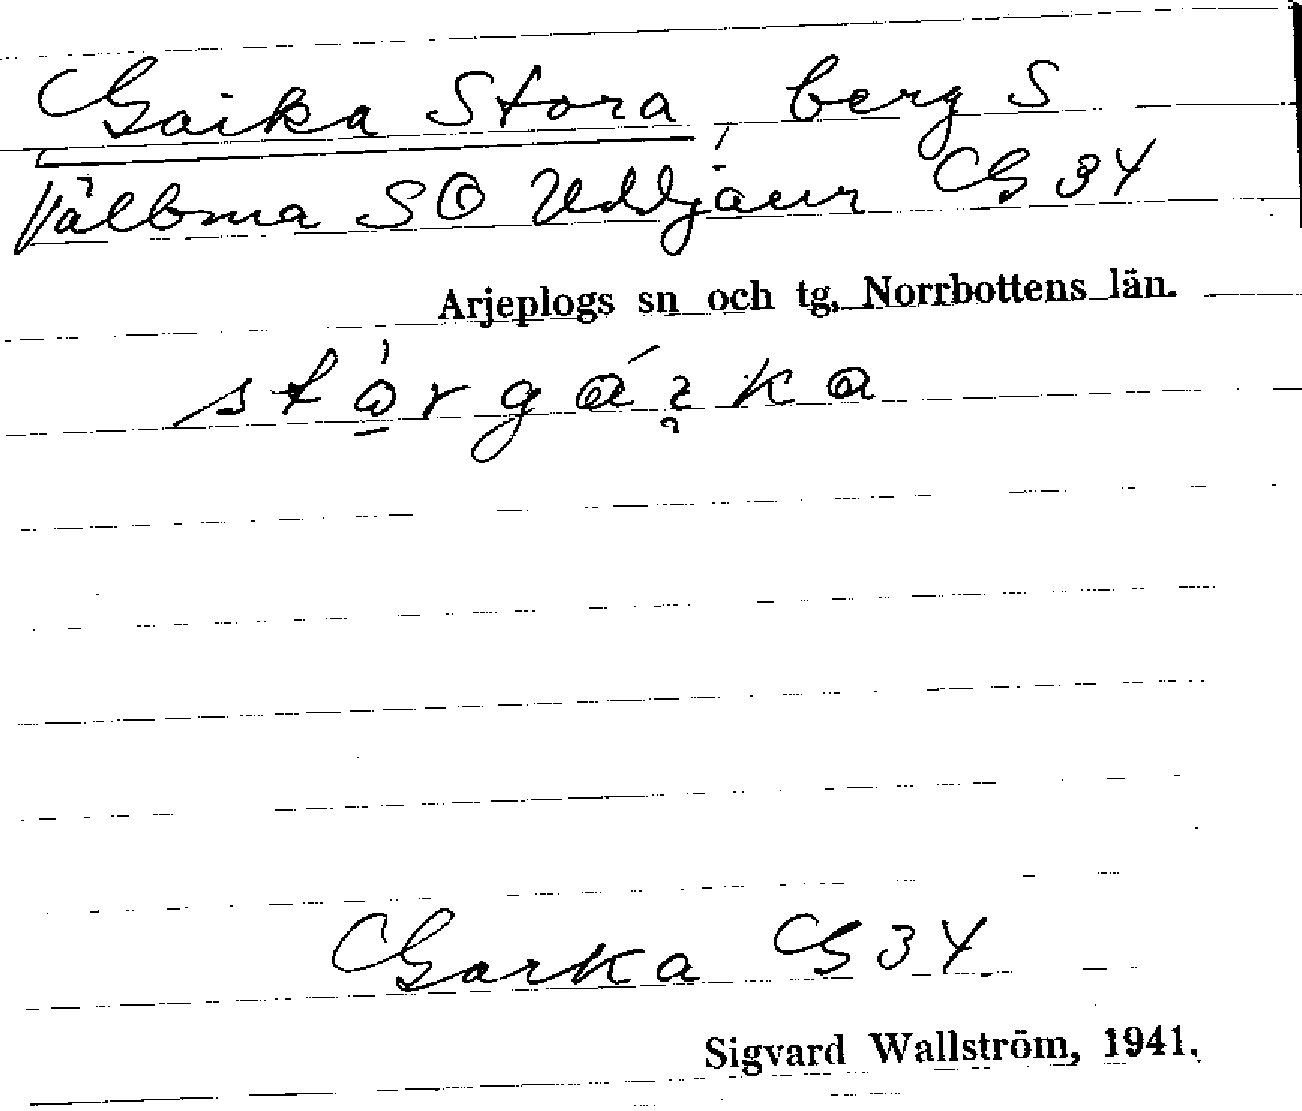 Gaika Stora, berg S
Välbma SO Uddjaur GS 34
Arjeplogs sn och tg, Norrbottens län.
Garka GS 34
Sigvard Wallström, 1941.